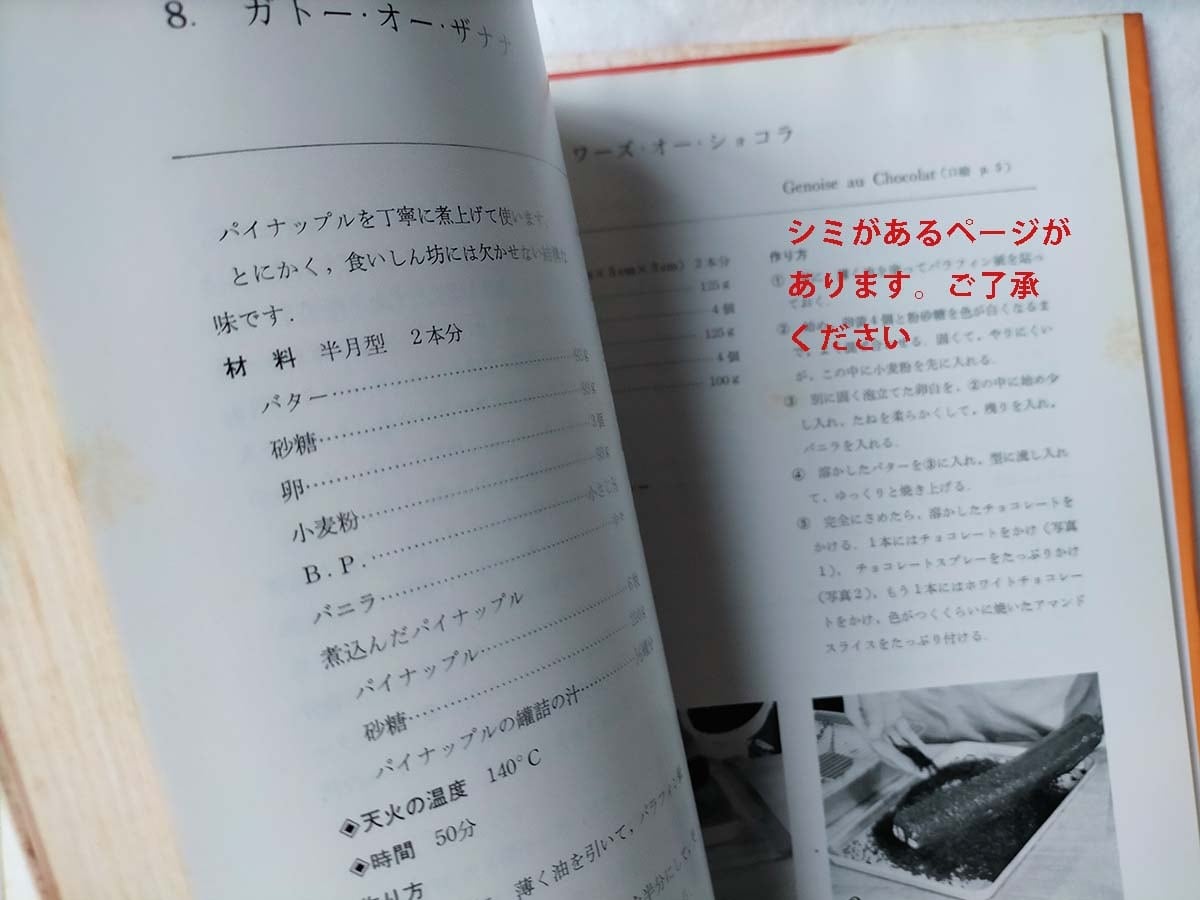 8. ガトー・オー・ザナナ
パイナップルを丁寧に煮上げて使います．
とにかく，食いしん坊には欠かせない
味です．
材 料 半月型 2本分
バター
砂糖
卵 3個
小麦粉
B.P.
バニラ
煮込んだパイナップル
パイナップル
砂糖
パイナップルの罐詰の汁
◈天火の温度 140°C
◈時間 50分
作り方
薄く油を引いて，パラフィン
半分にして，
ワーズ・オー・ショコラ
Genoise au Chocolat (口絵 p 5)
×5cm×5cm) 2本分
125g
4個
125g
4個
100g
作り方
① てパラフィン紙を貼っ
ておく．
② 4個と粉砂糖を色が白くなるま
る．固くて，やりにくい
が，この中に小麦粉を先に入れる．
③ 別に固く泡立てた卵白を，②の中に始め少
し入れ，たねを柔らかくして，残りを入れ，
バニラを入れる．
④ 溶かしたバターを③に入れ，型に流し入れ
て，ゆっくりと焼き上げる．
⑤ 完全にさめたら，溶かしたチョコレートを
かける．1本にはチョコレートをかけ（写真
1），チョコレートスプレーをたっぷりかけ
（写真2），もう1本にはホワイトチョコレー
トをかけ，色がつくくらいに焼いたアマンド
スライスをたっぷり付ける．
シミがあるページが
あります。ご了承
ください